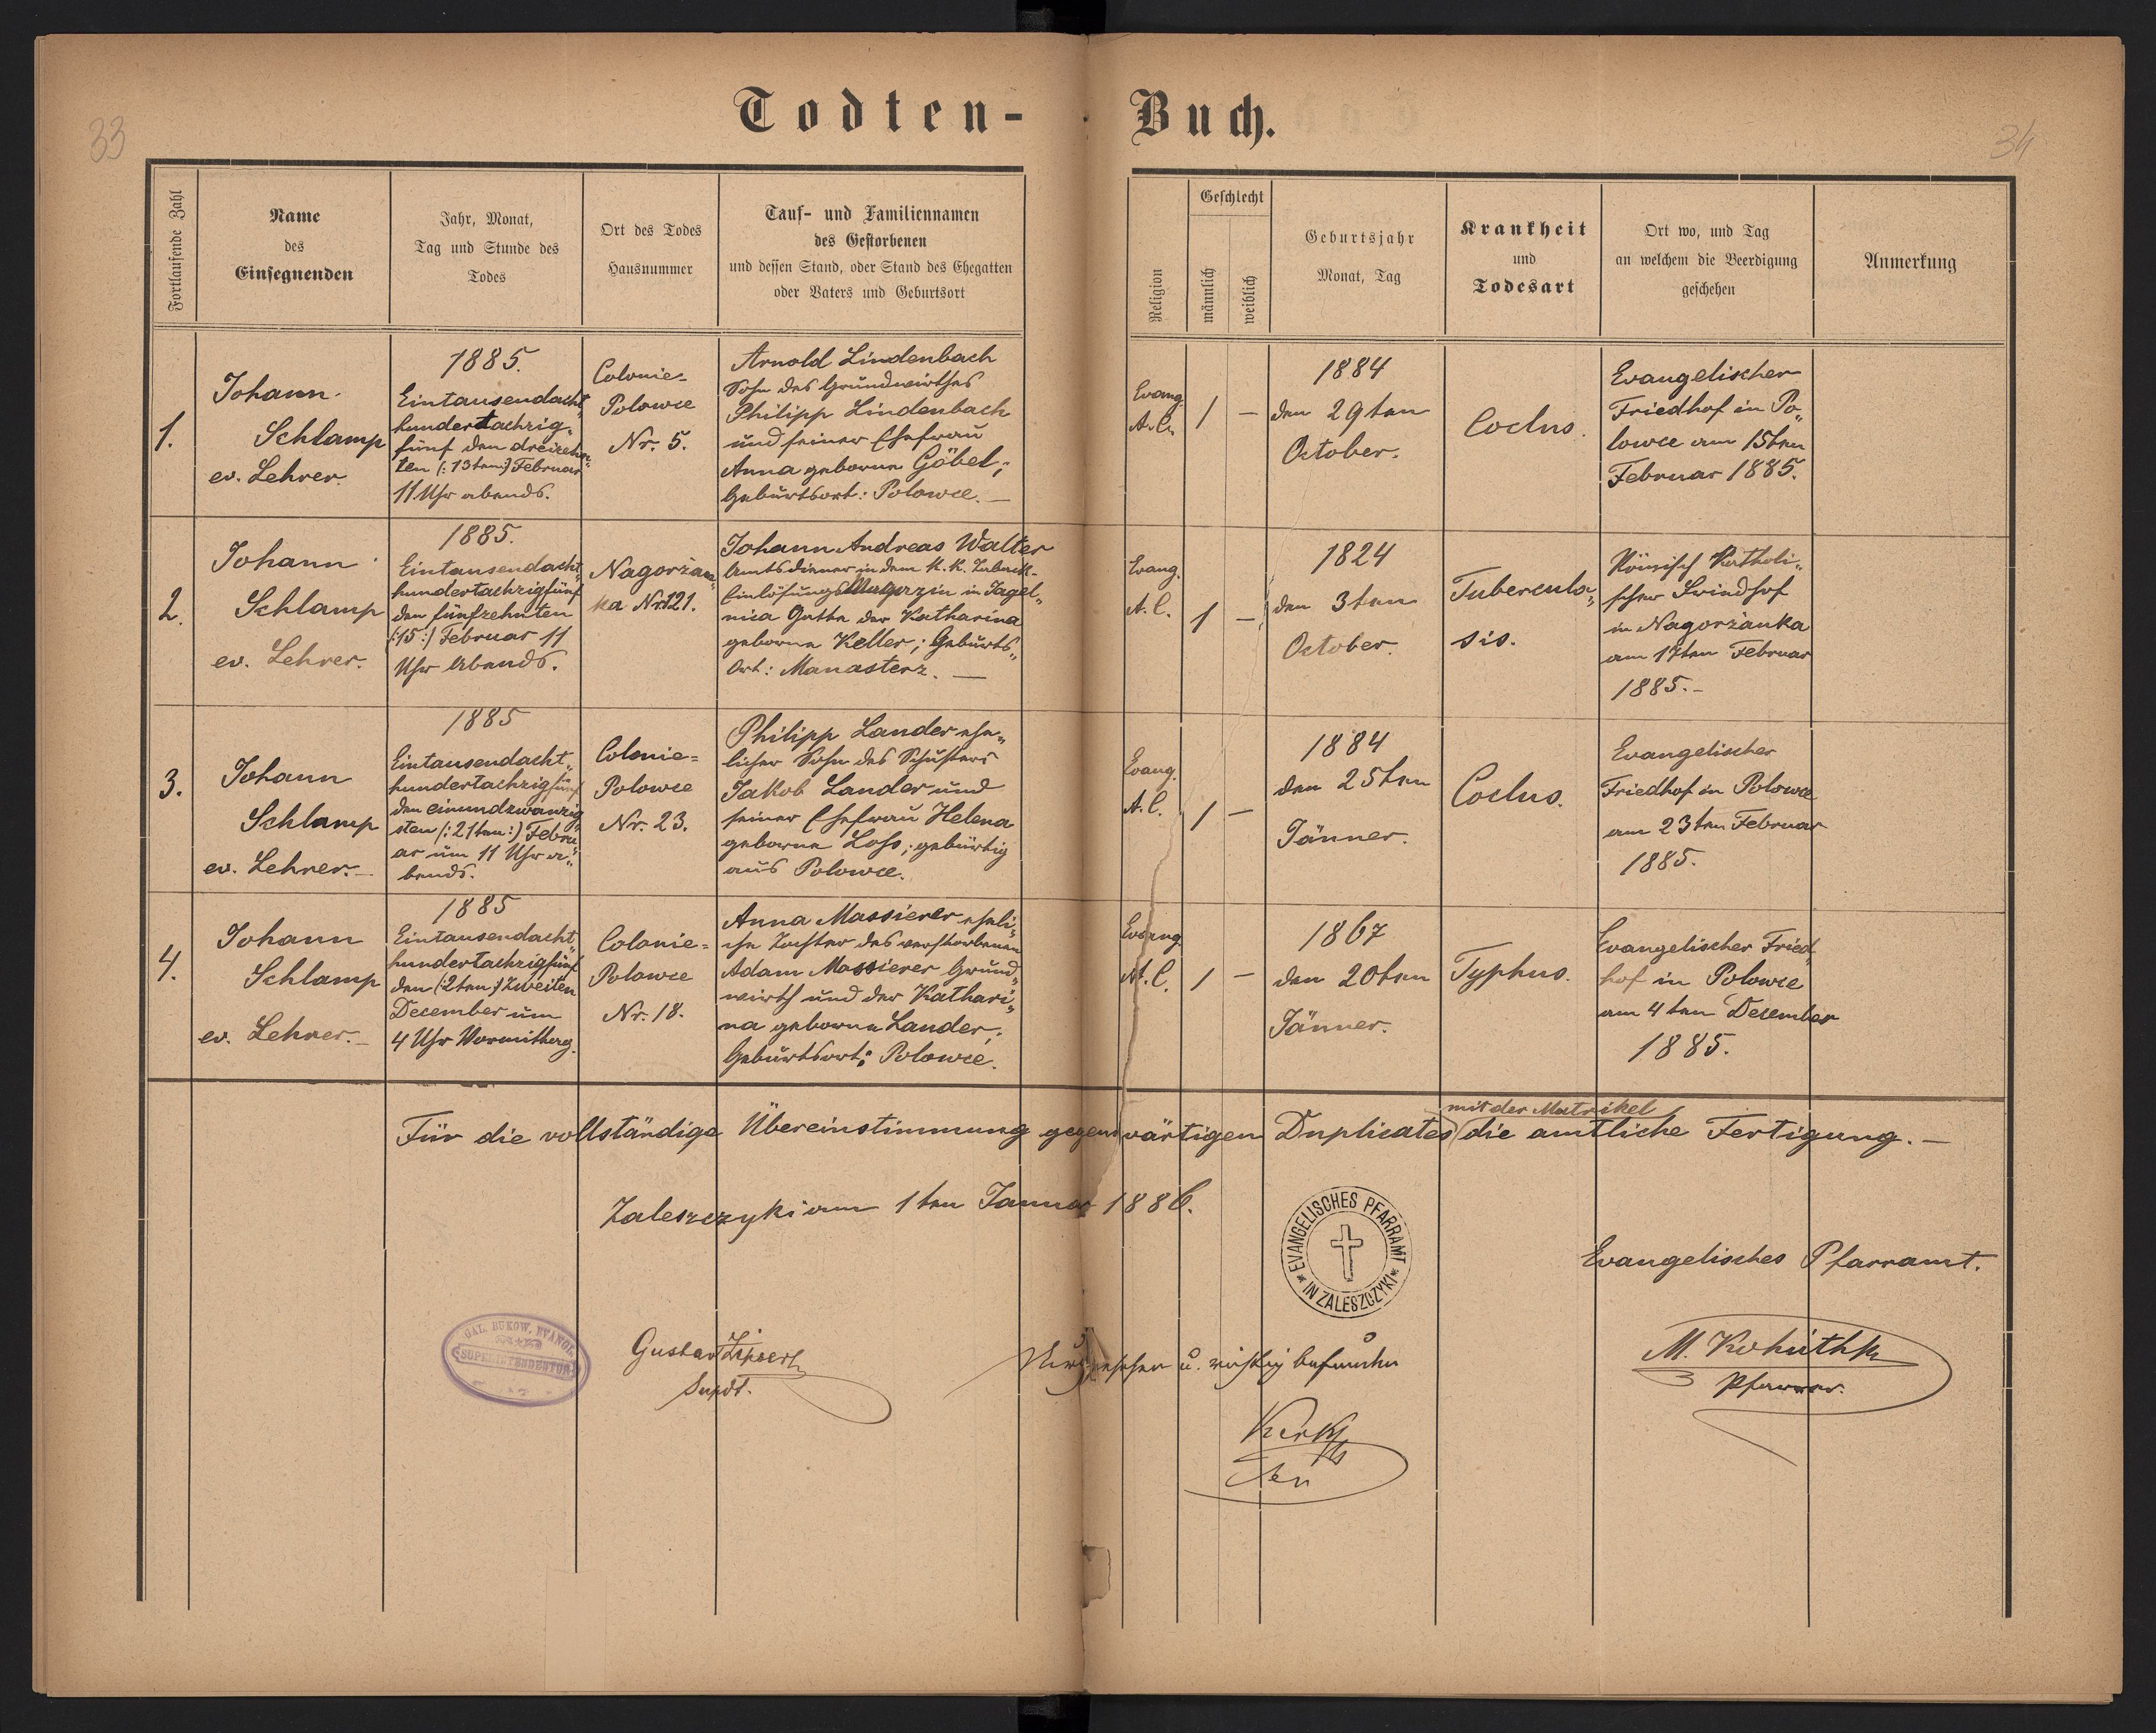 33
34
Todten-Buch.
Fortlaufende Zahl
Name
des
Einsegnenden
Jahr, Monat,
Tag und Stunde des
Todes
Ort des Todes
Hausnummer
Tauf- und Familiennamen
des Gestorbenen
und dessen Stand, oder Stand des Ehegatten
oder Vaters und Geburtsort
Religion
Geschlecht
männlich
weiblich
Geburtsjahr
Monat, Tag
Krankheit
und
Todesart
Ort wo, und Tag
an welchem die Beerdigung
geschehen
Anmerkung
1.
Johann
Schlamp
ev. Lehrer.
1885.
Eintausendacht„
hundertachzig„
fünf den dreizehn„
ten (:13ten:) Februar
11 Uhr abends.
Colonie=
Polowce
Nr. 5.
Arnold Lindenbach
Sohn des Grundwirthes
Philipp Lindenbach
und seiner Ehefrau
Anna geborne Göbel;
Geburtsort: Polowce. —
Evang.
A.C.
1 —
1884
den 29ten
October.
Coclus.
Evangelischer
Friedhof in Po„
lowce am 15ten
Februar 1885.
2.
Johann
Schlamp
ev. Lehrer.
1885.
Eintausendacht„
hundertachzigfünf
den fünfzehnten
(:15:) Februar 11
Uhr Abends.
Nagorzan„
ka Nr. 121.
Johann Andreas Walter
Amtsdiener in dem K.K. Taback-
Einlösungs Magazin in Jagel„
nica Gatte der Katharina
geborne Keller; Geburts„
Ort: Manasterz. —
Evang.
A.C.
1 —
1824
den 3ten
October.
Tuberculo„
sis.
Römisch Katholi„
scher Friedhof
in Nagorzanka
am 17ten Februar
1885.-
3.
Johann
Schlamp
ev. Lehrer.-
1885
Eintausendacht„
hundertachzigfünf
den einundzwanzig
sten (:21ten:) Febru„
ar um 11 Uhr a„
bends.
Colonie=
Polowce
Nr. 23.
Philipp Lander ehe„
licher Sohn des Schusters
Jakob Lander und
seiner Ehefrau Helena
geborne Loss; gebürtig
aus Polowce.
Evang.
A.C.
1 —
1884
den 25ten
Jänner.
Coclus.
Evangelischer
Friedhof in Polowce
am 23ten Februar
1885.
4.
Johann
Schlamp
ev. Lehrer.-
1885
Eintausendacht„
hundertachzigfünf
den (:2ten:) zweiten
December um
4 Uhr Vormittag.
Colonie=
Polowce
Nr. 18.
Anna Massierer eheli„
che Tochter des verstorbenen
Adam Massierer Grund„
wirth und der Kathari„
na geborne Lander,
Geburtsort: Polowce.
Evang.
A.C.
1 —
1867
den 20ten
Jänner.
Typhus.
Evangelischer Fried„
hof in Polowce
am 4ten December
1885.
mit der Matrikel
Für die vollständige Übereinstimmung gegenwärtigen Duplicates die amtliche Fertigung. —
Zaleszczyki am 1ten Januar 1886.
EVANGELISCHES PFARRAMT
IN ZALESZCZYKI
Evangelisches Pfarramt.
GAL. BUKOW. EVANGL.
SUPERINTENDENTUR
Gustav
Supdt.
u. richtig befunden
Pfarrer.